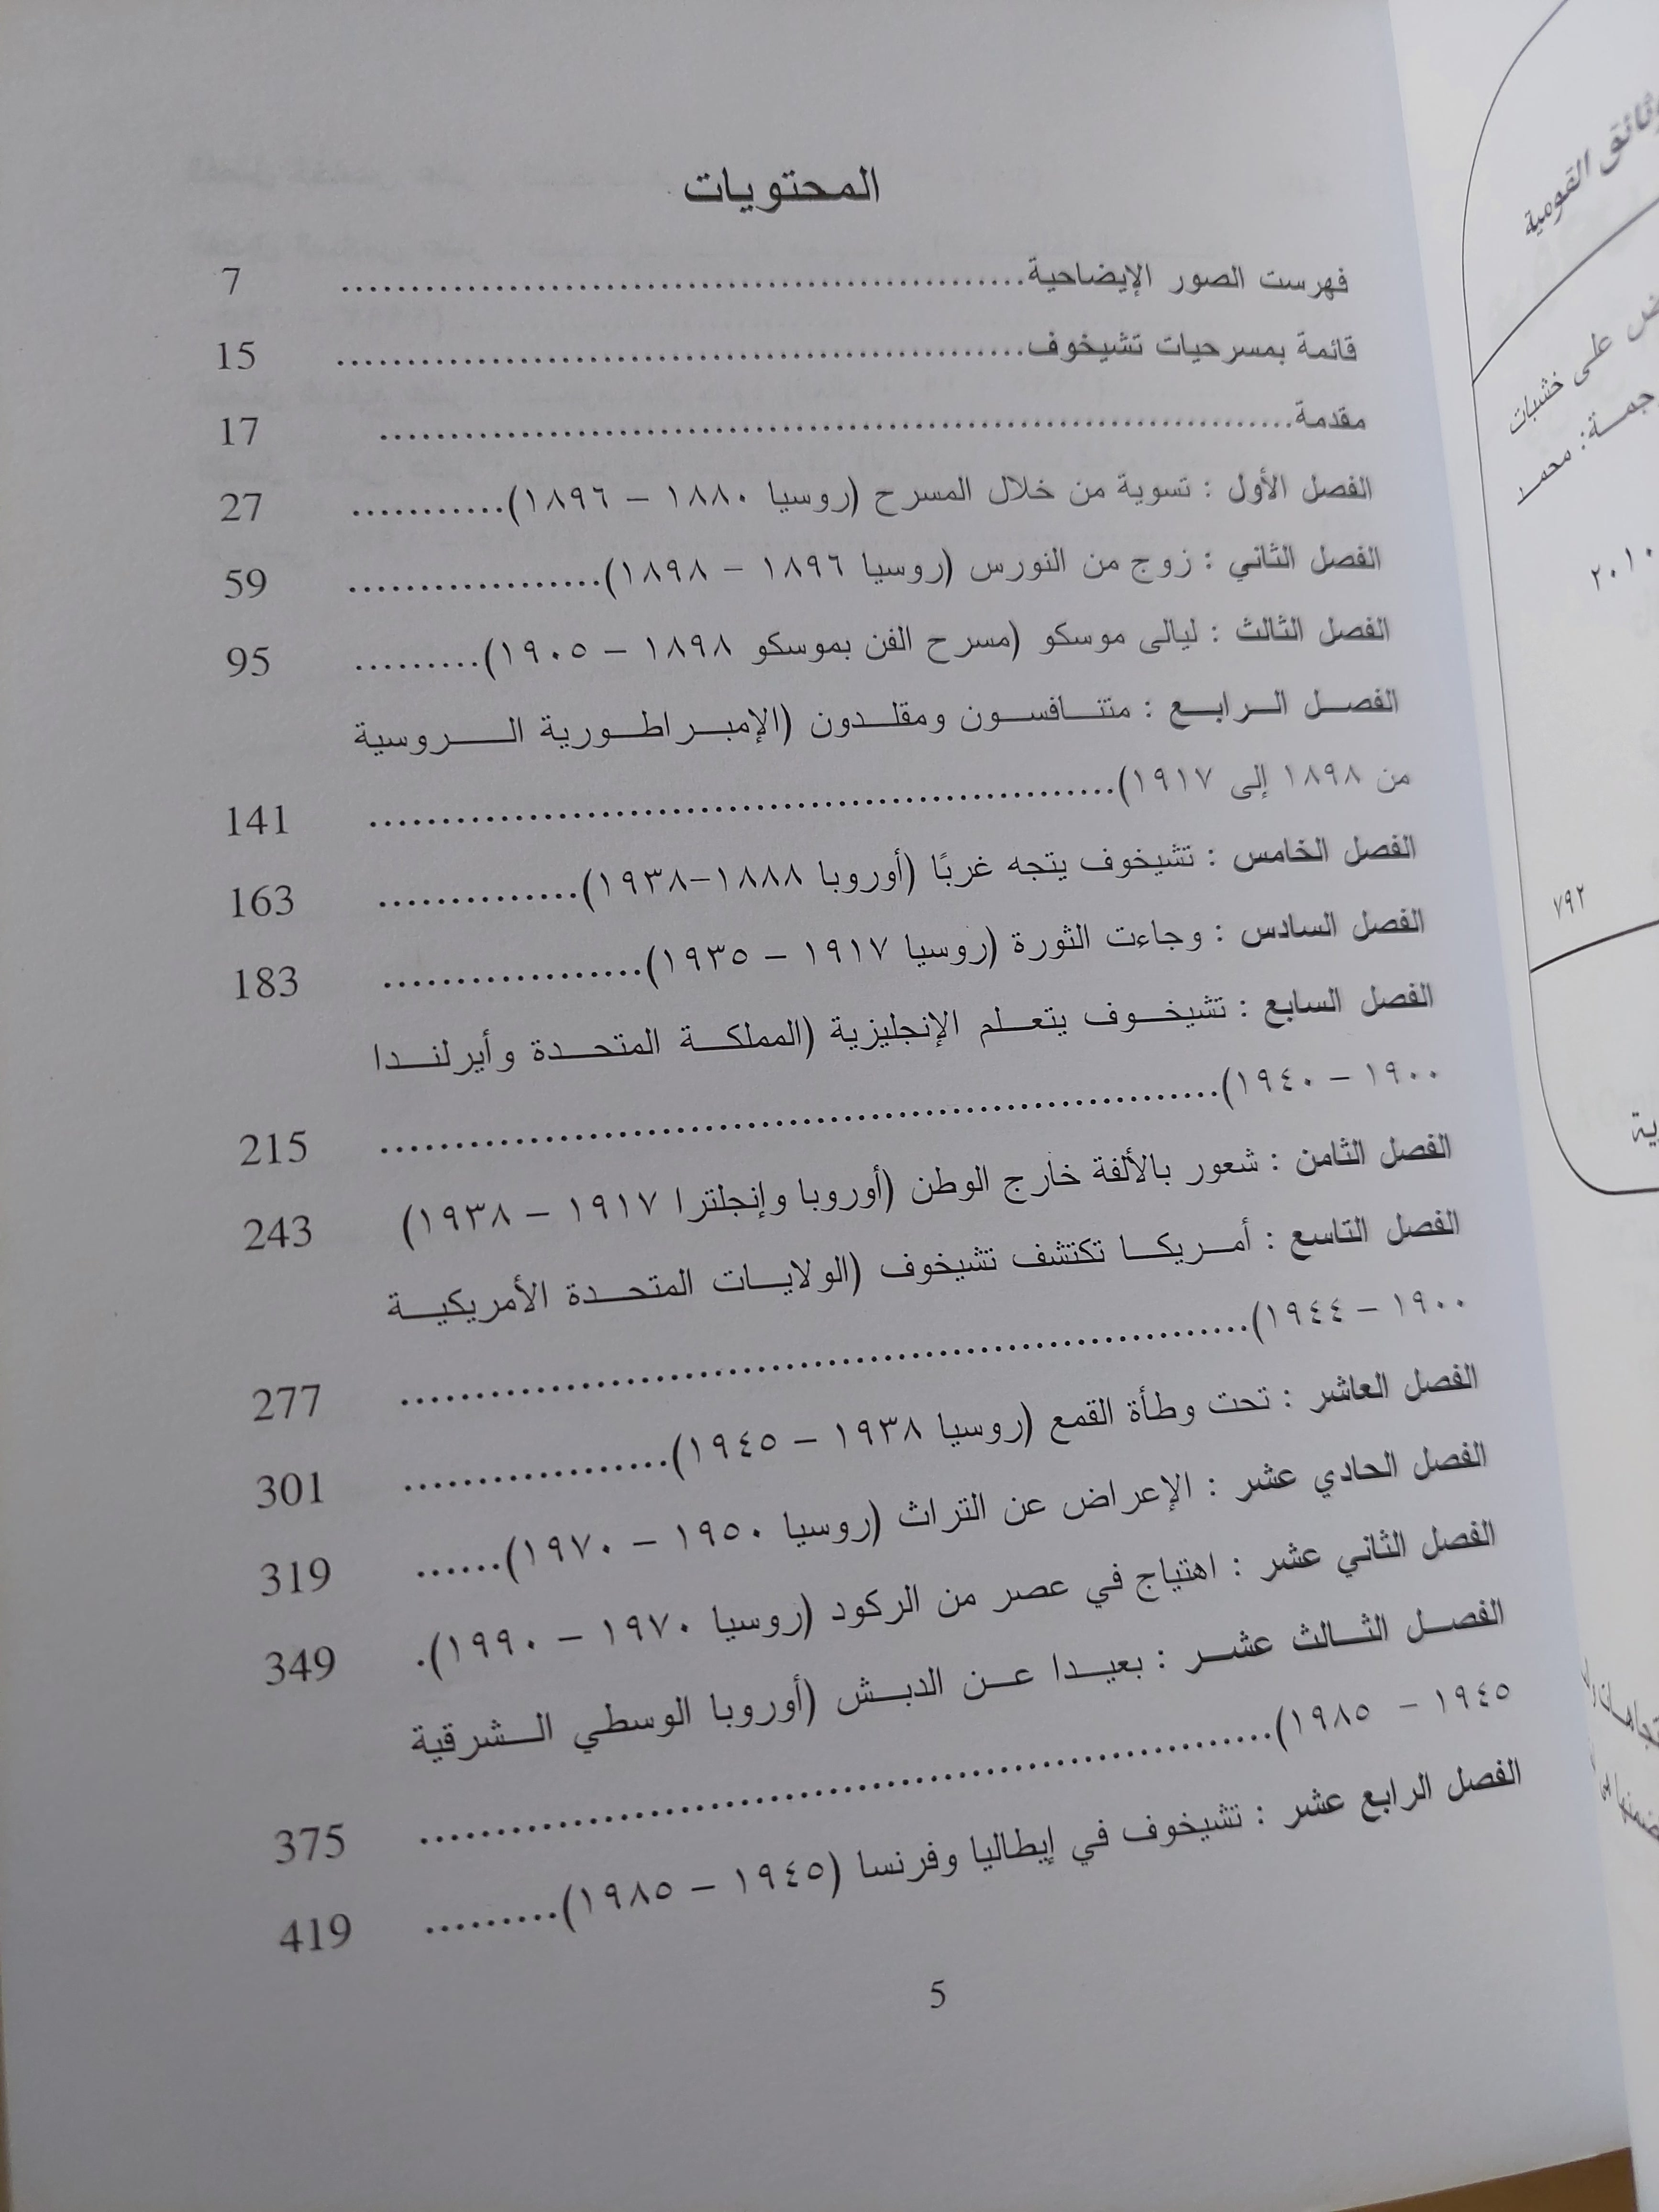 المحتويات
فهرست الصور الإيضاحية.................................................. 7
قائمة بمسرحيات تشيخوف.................................................. 15
مقدمة.................................................................. 17
الفصل الأول : تسوية من خلال المسرح (روسيا ١٨٨٠ – ١٨٩٦)........... 27
الفصل الثاني : زوج من النورس (روسيا ١٨٩٦ – ١٨٩٨).................. 59
الفصل الثالث : ليالى موسكو (مسرح الفن بموسكو ١٨٩٨ – ١٩٠٥)......... 95
الفصل الرابع : متنافسون ومقلدون (الإمبراطورية الروسية
من ١٨٩٨ إلى ١٩١٧).................................................... 141
الفصل الخامس : تشيخوف يتجه غربًا (أوروبا ١٨٨٨–١٩٣٨).............. 163
الفصل السادس : وجاءت الثورة (روسيا ١٩١٧ – ١٩٣٥).................. 183
الفصل السابع : تشيخوف يتعلم الإنجليزية (المملكة المتحدة وأيرلندا
١٩٠٠ – ١٩٤٠)......................................................... 215
الفصل الثامن : شعور بالألفة خارج الوطن (أوروبا وإنجلترا ١٩١٧ – ١٩٣٨) 243
الفصل التاسع : أمريكا تكتشف تشيخوف (الولايات المتحدة الأمريكية
١٩٠٠ – ١٩٤٤)......................................................... 277
الفصل العاشر : تحت وطأة القمع (روسيا ١٩٣٨ – ١٩٤٥)................... 301
الفصل الحادي عشر : الإعراض عن التراث (روسيا ١٩٥٠ – ١٩٧٠)...... 319
الفصل الثاني عشر : اهتياج في عصر من الركود (روسيا ١٩٧٠ – ١٩٩٠). 349
الفصل الثالث عشر : بعيدا عن الدبش (أوروبا الوسطي الشرقية
١٩٤٥ – ١٩٨٥)......................................................... 375
الفصل الرابع عشر : تشيخوف في إيطاليا وفرنسا (١٩٤٥ – ١٩٨٥)......... 419
5
القومية
على خشبات
محمد
٢٠١٠
٧٩٢